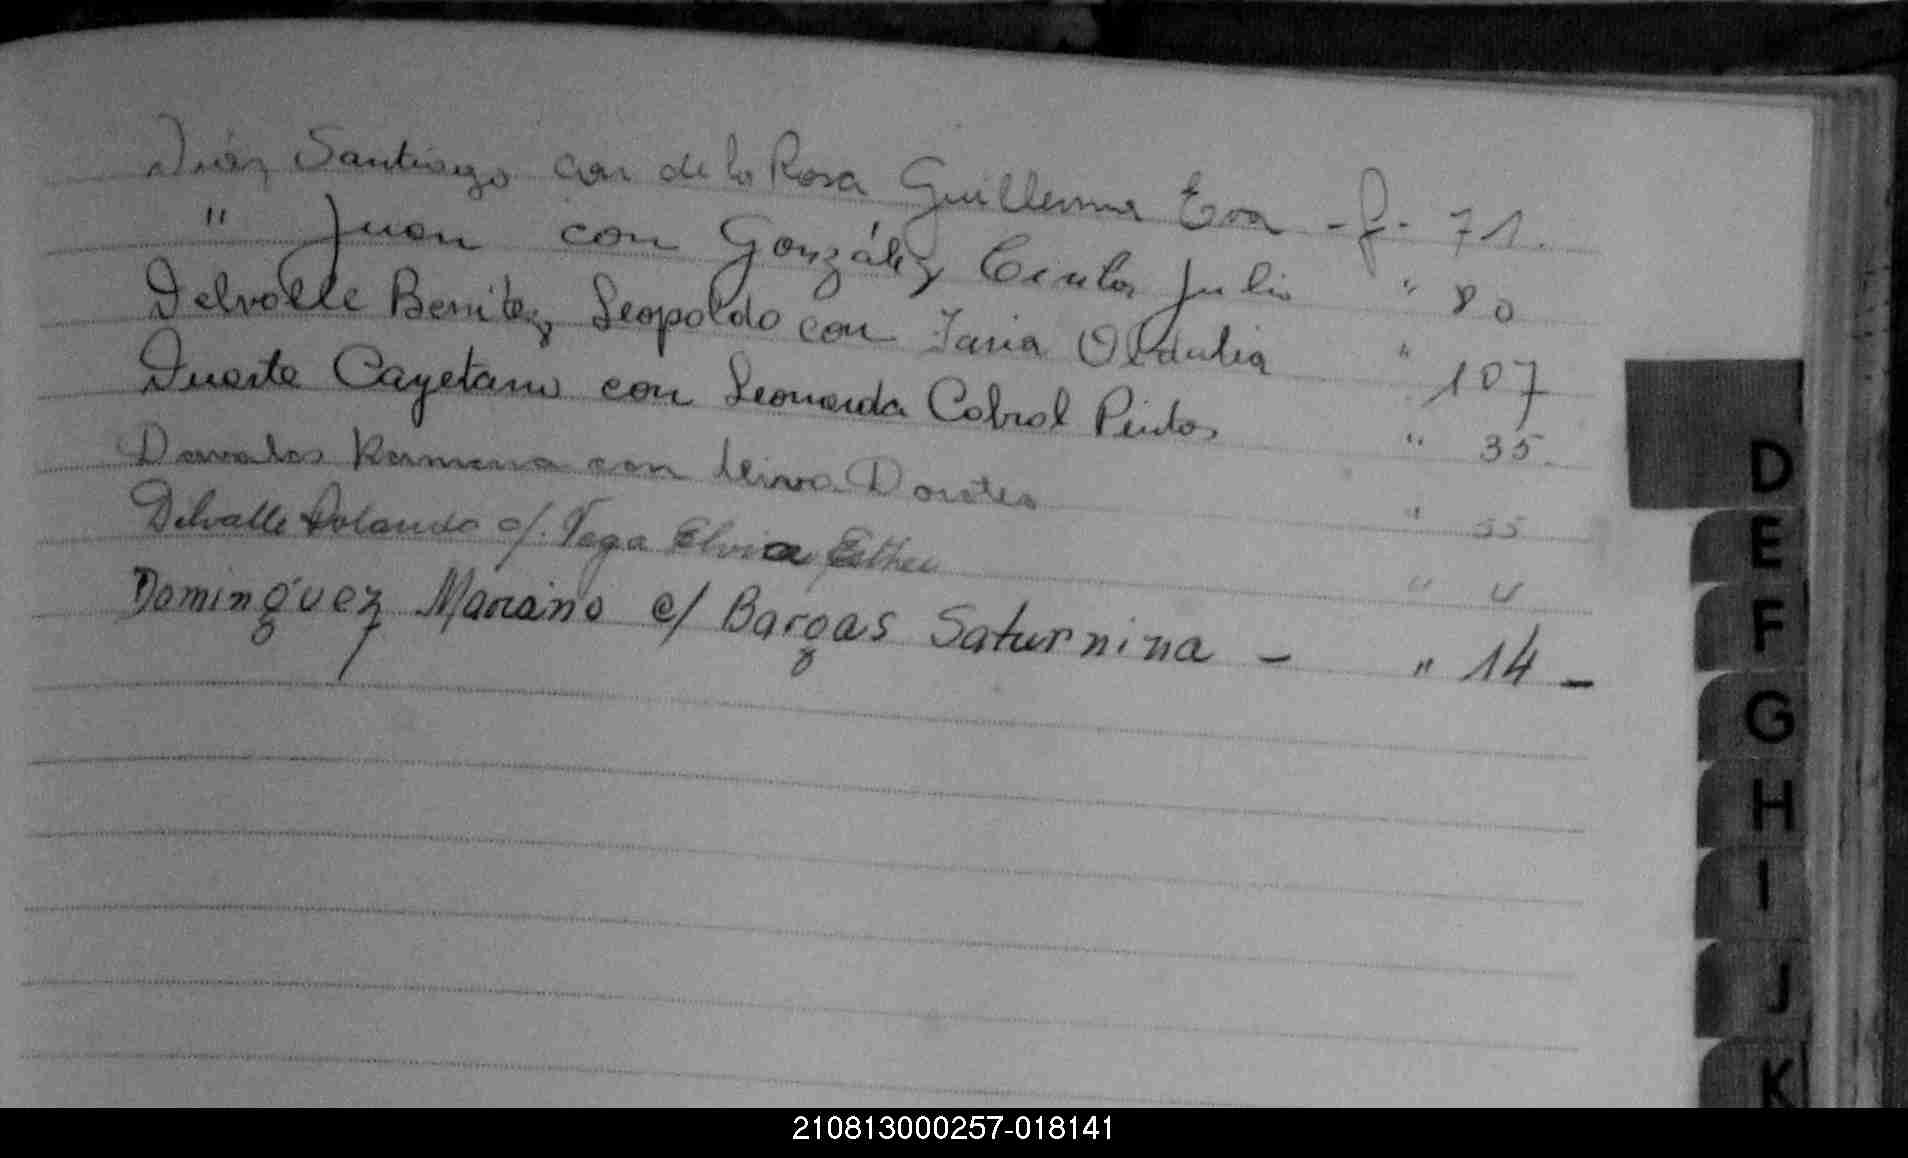 Díaz Santiago con de la Rosa Guillerma Eva - f - 71.
" Juan con González Julia " 80
Delvalle Benítez Leopoldo con Obdulia " 107
Duarte Cayetano con Leonarda Cabral Pintos " 35.
Davalos Ramona con Leiva Doroteo " 55
Delvalle Rolando c/. Vega Elvia Esther "
Dominguez Mariano c/ Bargas Saturnina - " 14 -
D
E
F
G
H
I
J
K
210813000257-018141